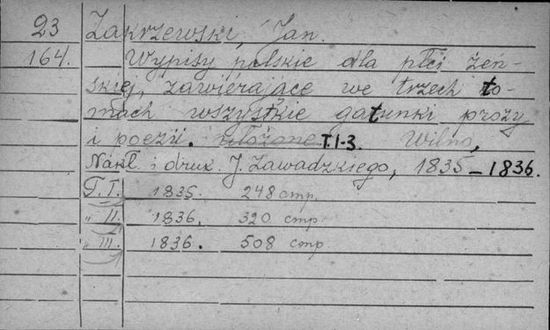 23 Zakrzewski, Jan.
164. Wypisy polskie dla płci żeń-
skiej, zawierające we trzech to-
mach wszystkie gatunki prozy
i poezii. ułożone T. 1-3. Wilno,
Nakł. i druk. J. Zawadzkiego, 1835-1836.
T. I. 1835. 248 стр.
" II. 1836. 320 стр
" III. 1836. 508 стр